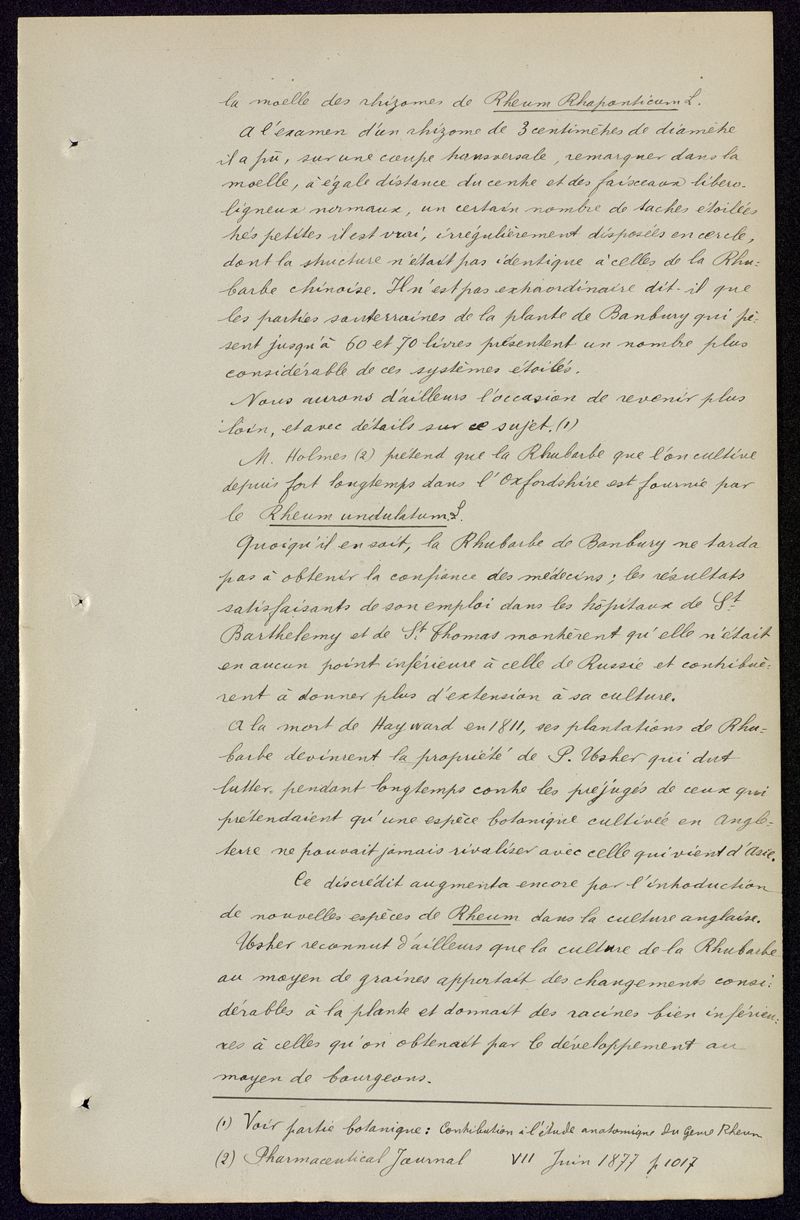 la moelle des rhizomes de Rheum Rhaponticum L.
A l'examen d'un rhizome de 3 centimètres de diamètre
il a pû, sur une coupe transversale, remarquer dans la
moelle, à égale distance du centre et des faisceaux libero-
ligneux normaux, un certain nombre de taches étoilées
très petites il est vrai, irrégulièrement disposées en cercle,
dont la structure n'était pas identique à celles de la Rhu-
barbe chinoise. Il n'est pas extraordinaire dit-il que
les parties souterraines de la plante de Banbury qui pè-
sent jusqu'à 60 et 70 livres présentent un nombre plus
considérable de ces systèmes étoilés.
Nous aurons d'ailleurs l'occasion de revenir plus
loin, et avec détails sur ce sujet. (1)
M. Holmes (2) prétend que la Rhubarbe que l'on cultive
depuis fort longtemps dans l'Oxfordshire est fournie par
le Rheum undulatum L.
Quoiqu'il en soit, la Rhubarbe de Banbury ne tarda
pas à obtenir la confiance des médecins; les résultats
satisfaisants de son emploi dans les hôpitaux de St
Barthelemy et de St Thomas montrèrent qu'elle n'était
en aucun point inférieure à celle de Russie et contribuè-
rent à donner plus d'extension à sa culture.
A la mort de Hayward en 1811, ses plantations de Rhu-
barbe devinrent la propriété de P. Usher qui dut
lutter pendant longtemps contre les préjugés de ceux qui
prétendaient qu'une espèce botanique cultivée en Angle-
terre ne pouvait jamais rivaliser avec celle qui vient d'Asie.
Ce discrédit augmenta encore par l'introduction
de nouvelles espèces de Rheum dans la culture anglaise.
Usher reconnut d'ailleurs que la culture de la Rhubarbe
au moyen de graines apportait des changements consi-
dérables à la plante et donnait des racines bien inférieu-
res à celles qu'on obtenait par le développement au
moyen de bourgeons.
(1) Voir partie botanique: Contribution à l'étude anatomique du genre Rheum
(2) Pharmaceutical Journal VII Juin 1877 p 1017